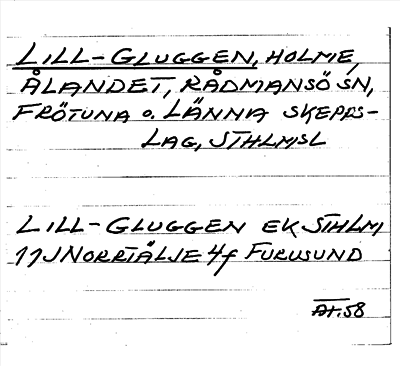 LILL-GLUGGEN, HOLME,
ÅLANDET, RÅDMANSÖ SN,
FRÖTUNA o. LÄNNA SKEPPS-
LAG, STHLMSL
LILL-GLUGGEN EK STHLM
11J NORRTÄLJE 4f FURUSUND
AT.58